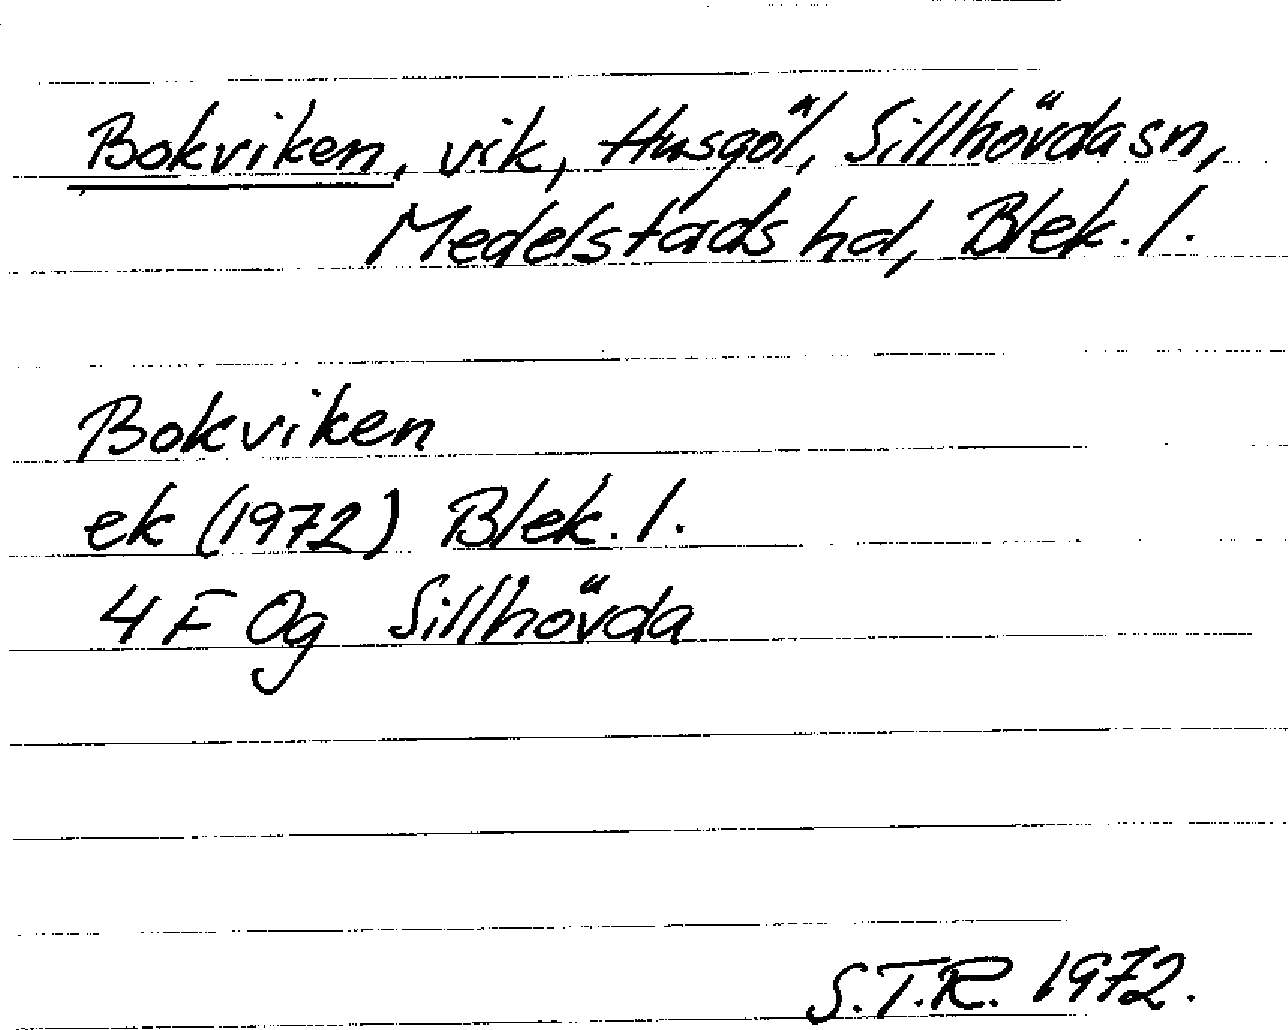 Bokviken, vik, Husgöl, Sillhövda sn,
Medelstads hd, Blek. l.
Bokviken
ek (1972) Blek. l.
4 F 0g Sillhövda
S.T.R. 1972.